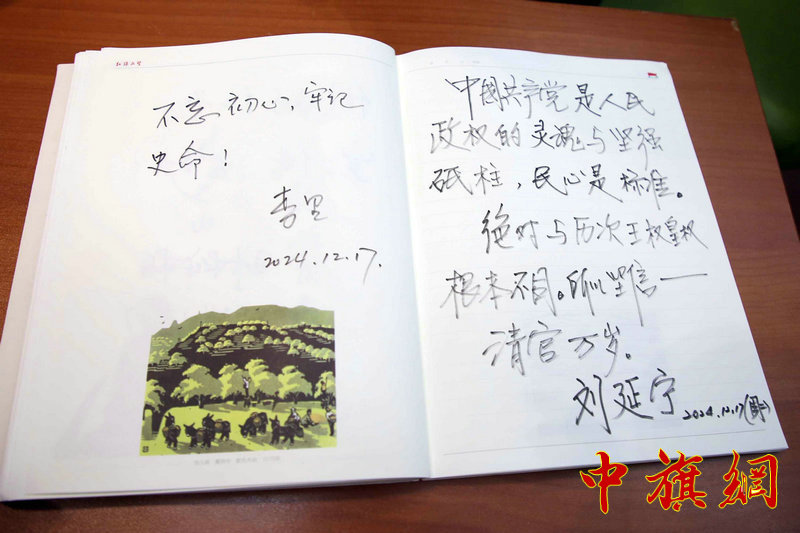 不忘初心,牢记
史命!
李里
2024.12.17.
中國共产党是人民
政权的灵魂与坚强
砥柱,民心是标准。
绝对与历次王权皇权
根本不同。所以坚信——
清官万岁。
刘延宁 2024.12.17(周二)
中旗網